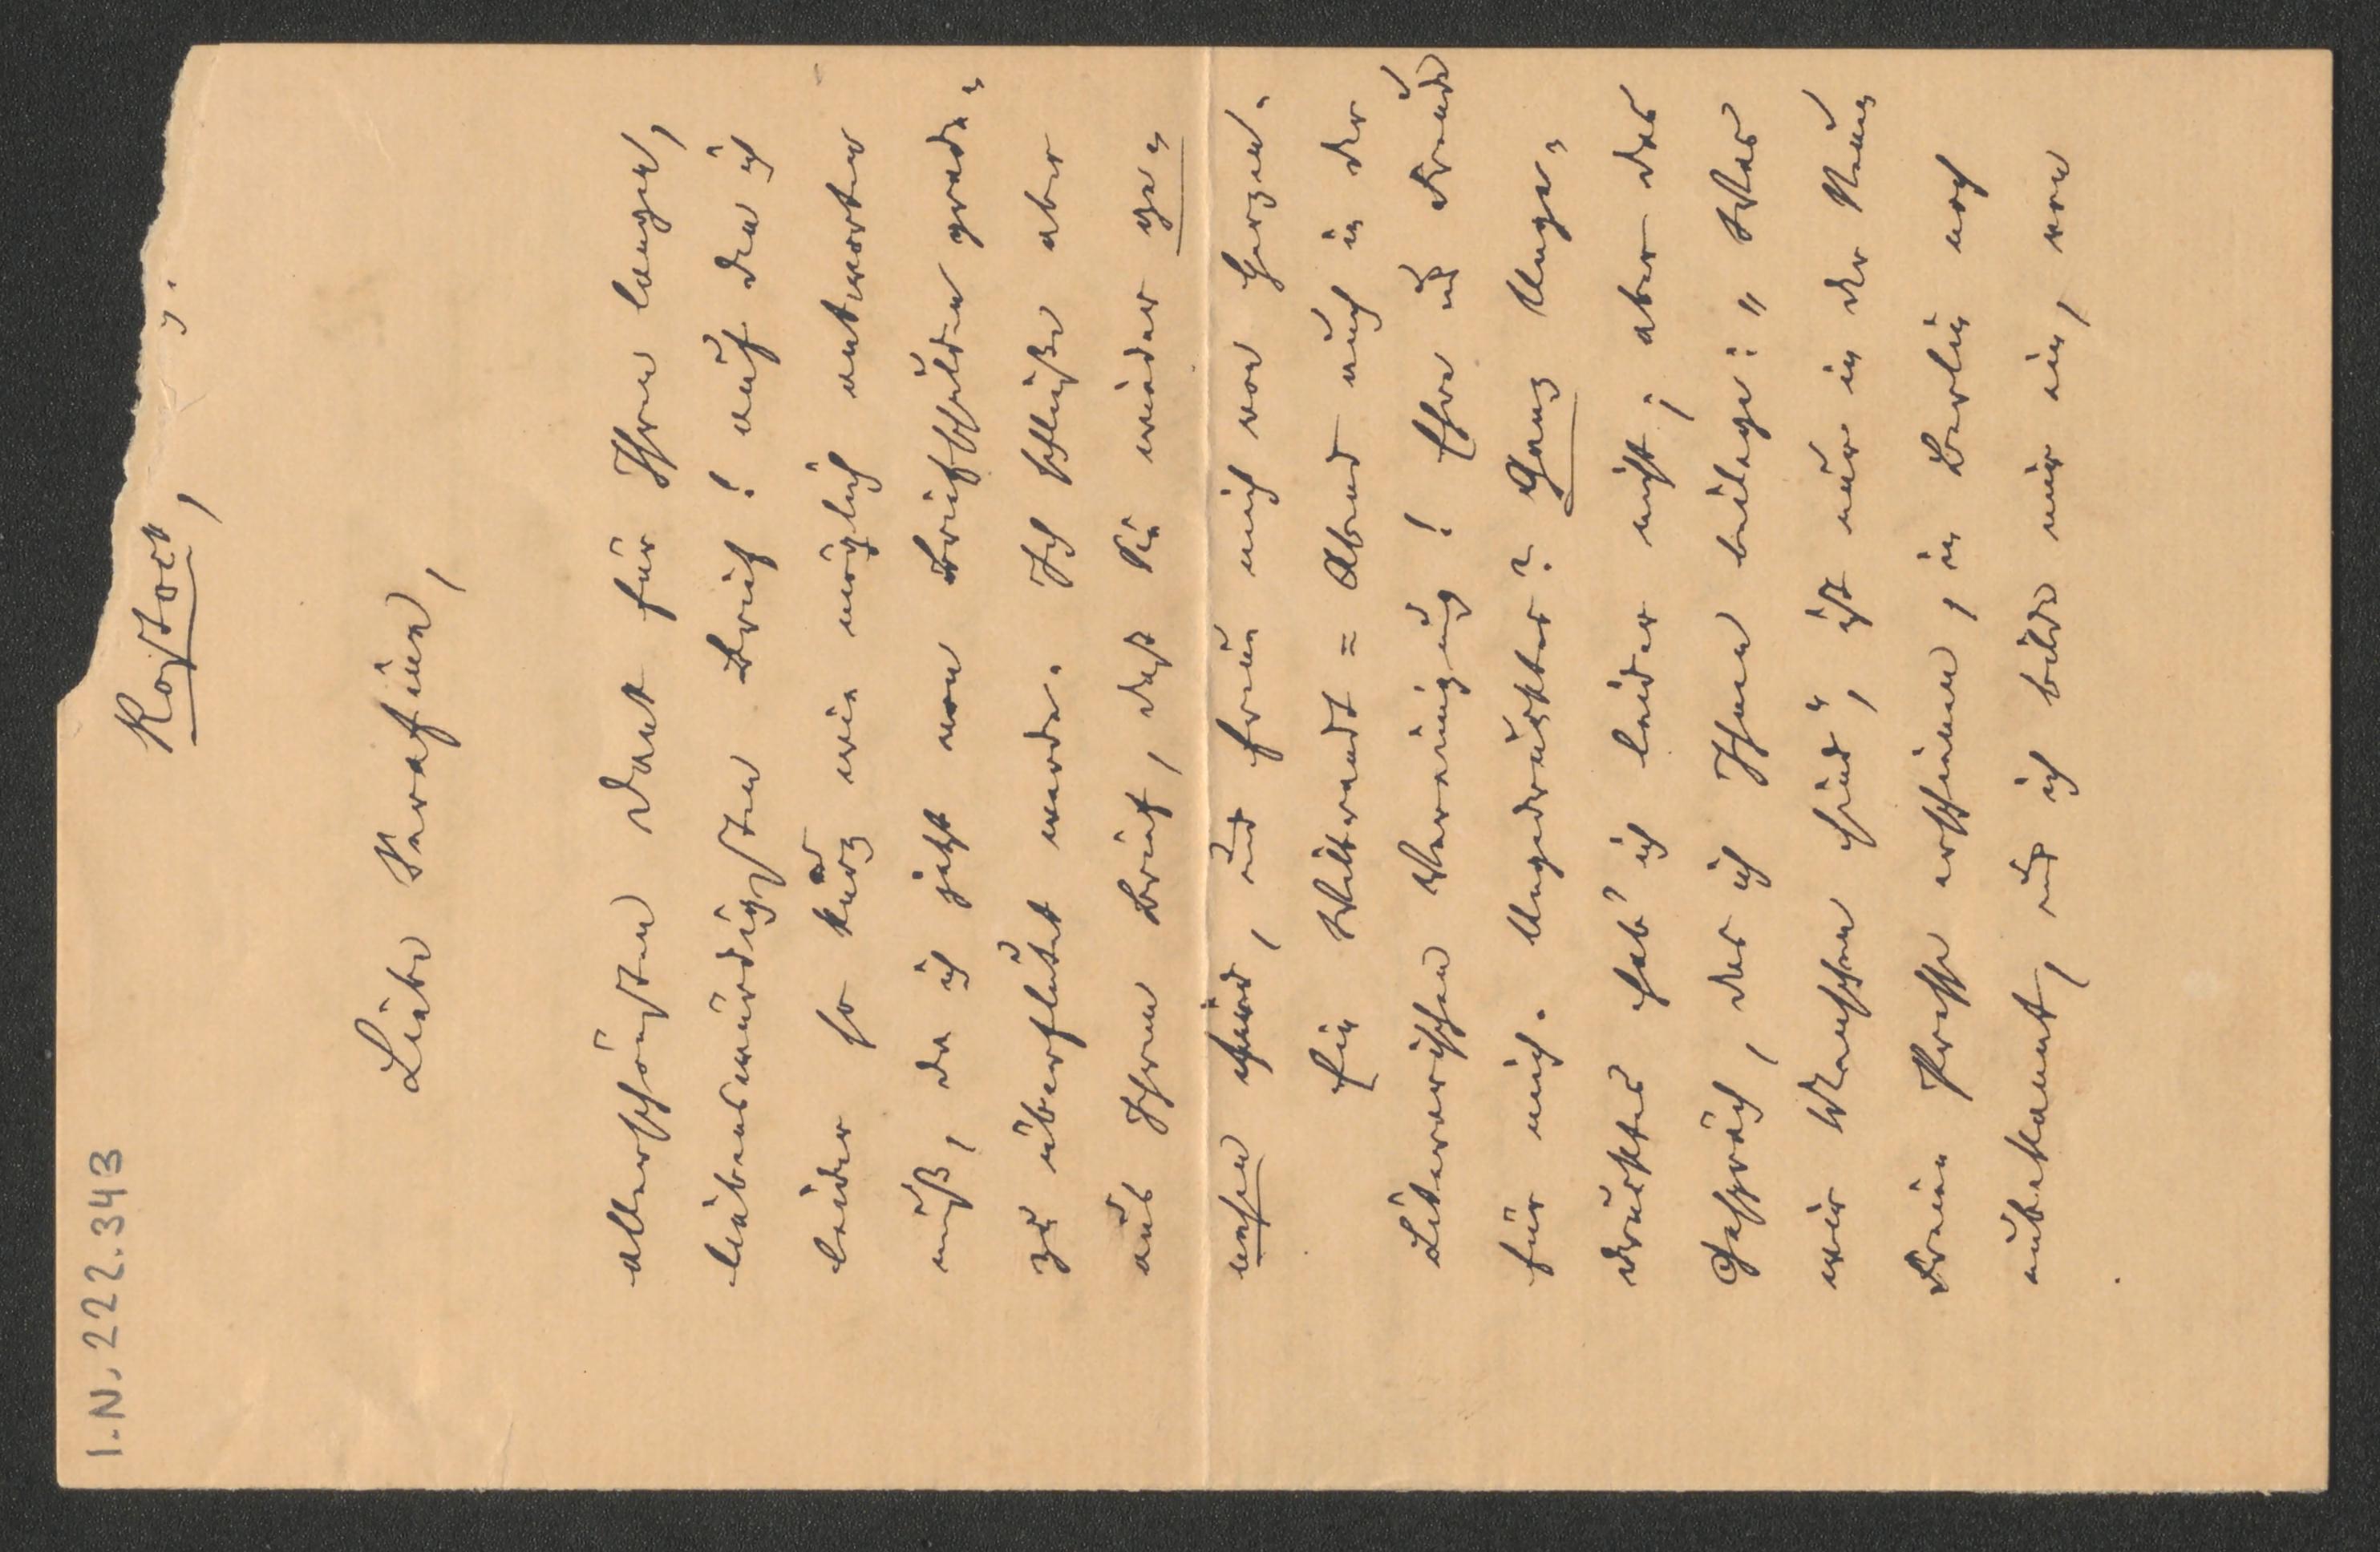 I.N. 222.343
Rostock,
Liebe Serafine,
allerschönsten Dank für Ihren langen,
liebenswürdigsten Brief! auf den ich
leider so kurz wie möglich antworten
muß, da ich jetzt von Briefschulden gerade=
zu überflutet werde. Ich schließe aber
aus Ihrem Brief, daß Sie wieder ge=
nesen sind, und freue mich von Herzen.
Ein Wilbrandt=Abend auch in der
Literarischen Vereinigung! Ehre und Freude
für mich. Ungedrucktes? Ganz Unge=
drucktes hab' ich leider nicht; aber das
Gespräch, das ich Ihnen beilege: „Was
wir Menschen sind“, ist nur in der Neuen
Freien Presse erschienen, in Berlin noch
unbekannt, und ich bilde mir ein, von